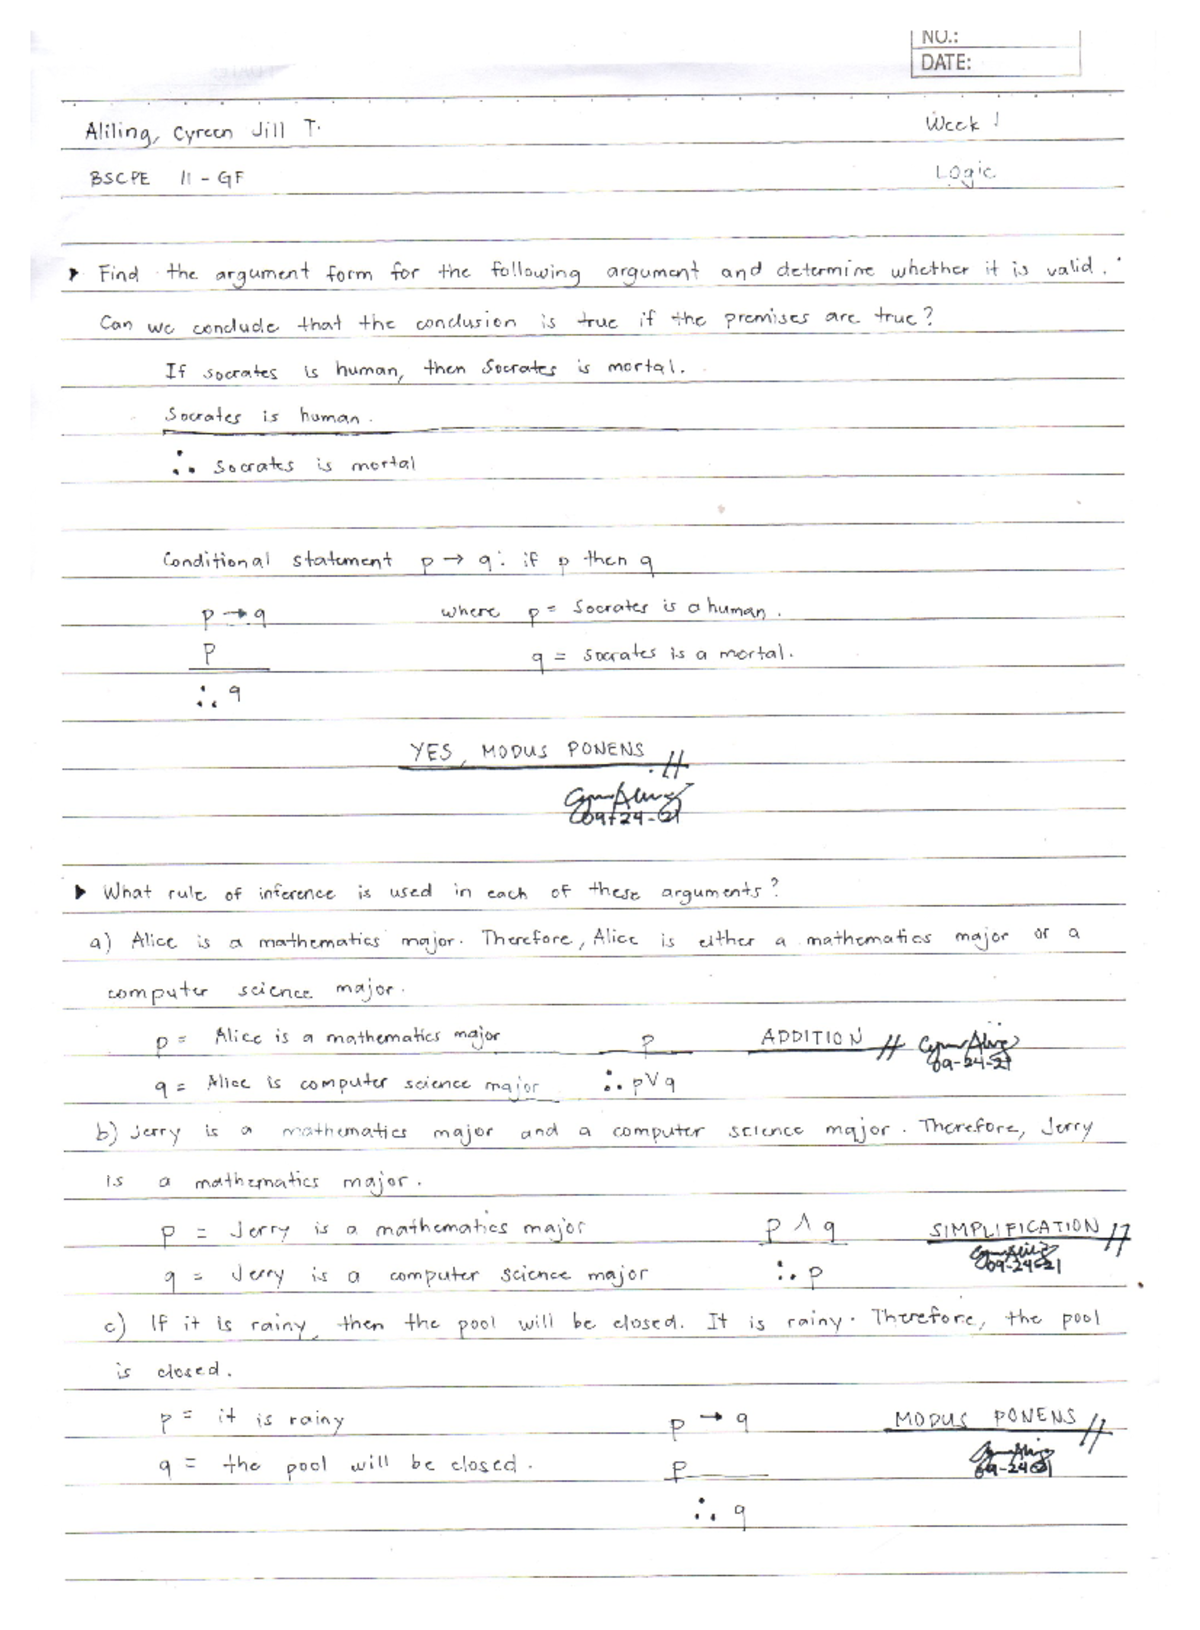 NO.:
DATE:
Aliling, Cyreen Jill T. Week 1
BSCPE 11 - GF Logic
▸ Find the argument form for the following argument and determine whether it is valid.
Can we conclude that the conclusion is true if the premises are true?
If socrates is human, then Socrates is mortal.
Socrates is human.
∴ Socrates is mortal
Conditional statement p → q: if p then q
p → q where p = Socrates is a human.
p q = socrates is a mortal.
∴ q
YES, MODUS PONENS //
09-24-21
▸ What rule of inference is used in each of these arguments?
a) Alice is a mathematics major. Therefore, Alice is either a mathematics major or a
computer science major.
p = Alice is a mathematics major p ADDITION //
09-24-21
q = Alice is computer science major ∴ p V q
b) Jerry is a mathematics major and a computer science major. Therefore, Jerry
is a mathematics major.
p = Jerry is a mathematics major p ∧ q SIMPLIFICATION //
09-24-21
q = Jerry is a computer science major ∴ p
c) If it is rainy, then the pool will be closed. It is rainy. Therefore, the pool
is closed.
p = it is rainy p → q MODUS PONENS //
09-24-21
q = the pool will be closed. p
∴ q